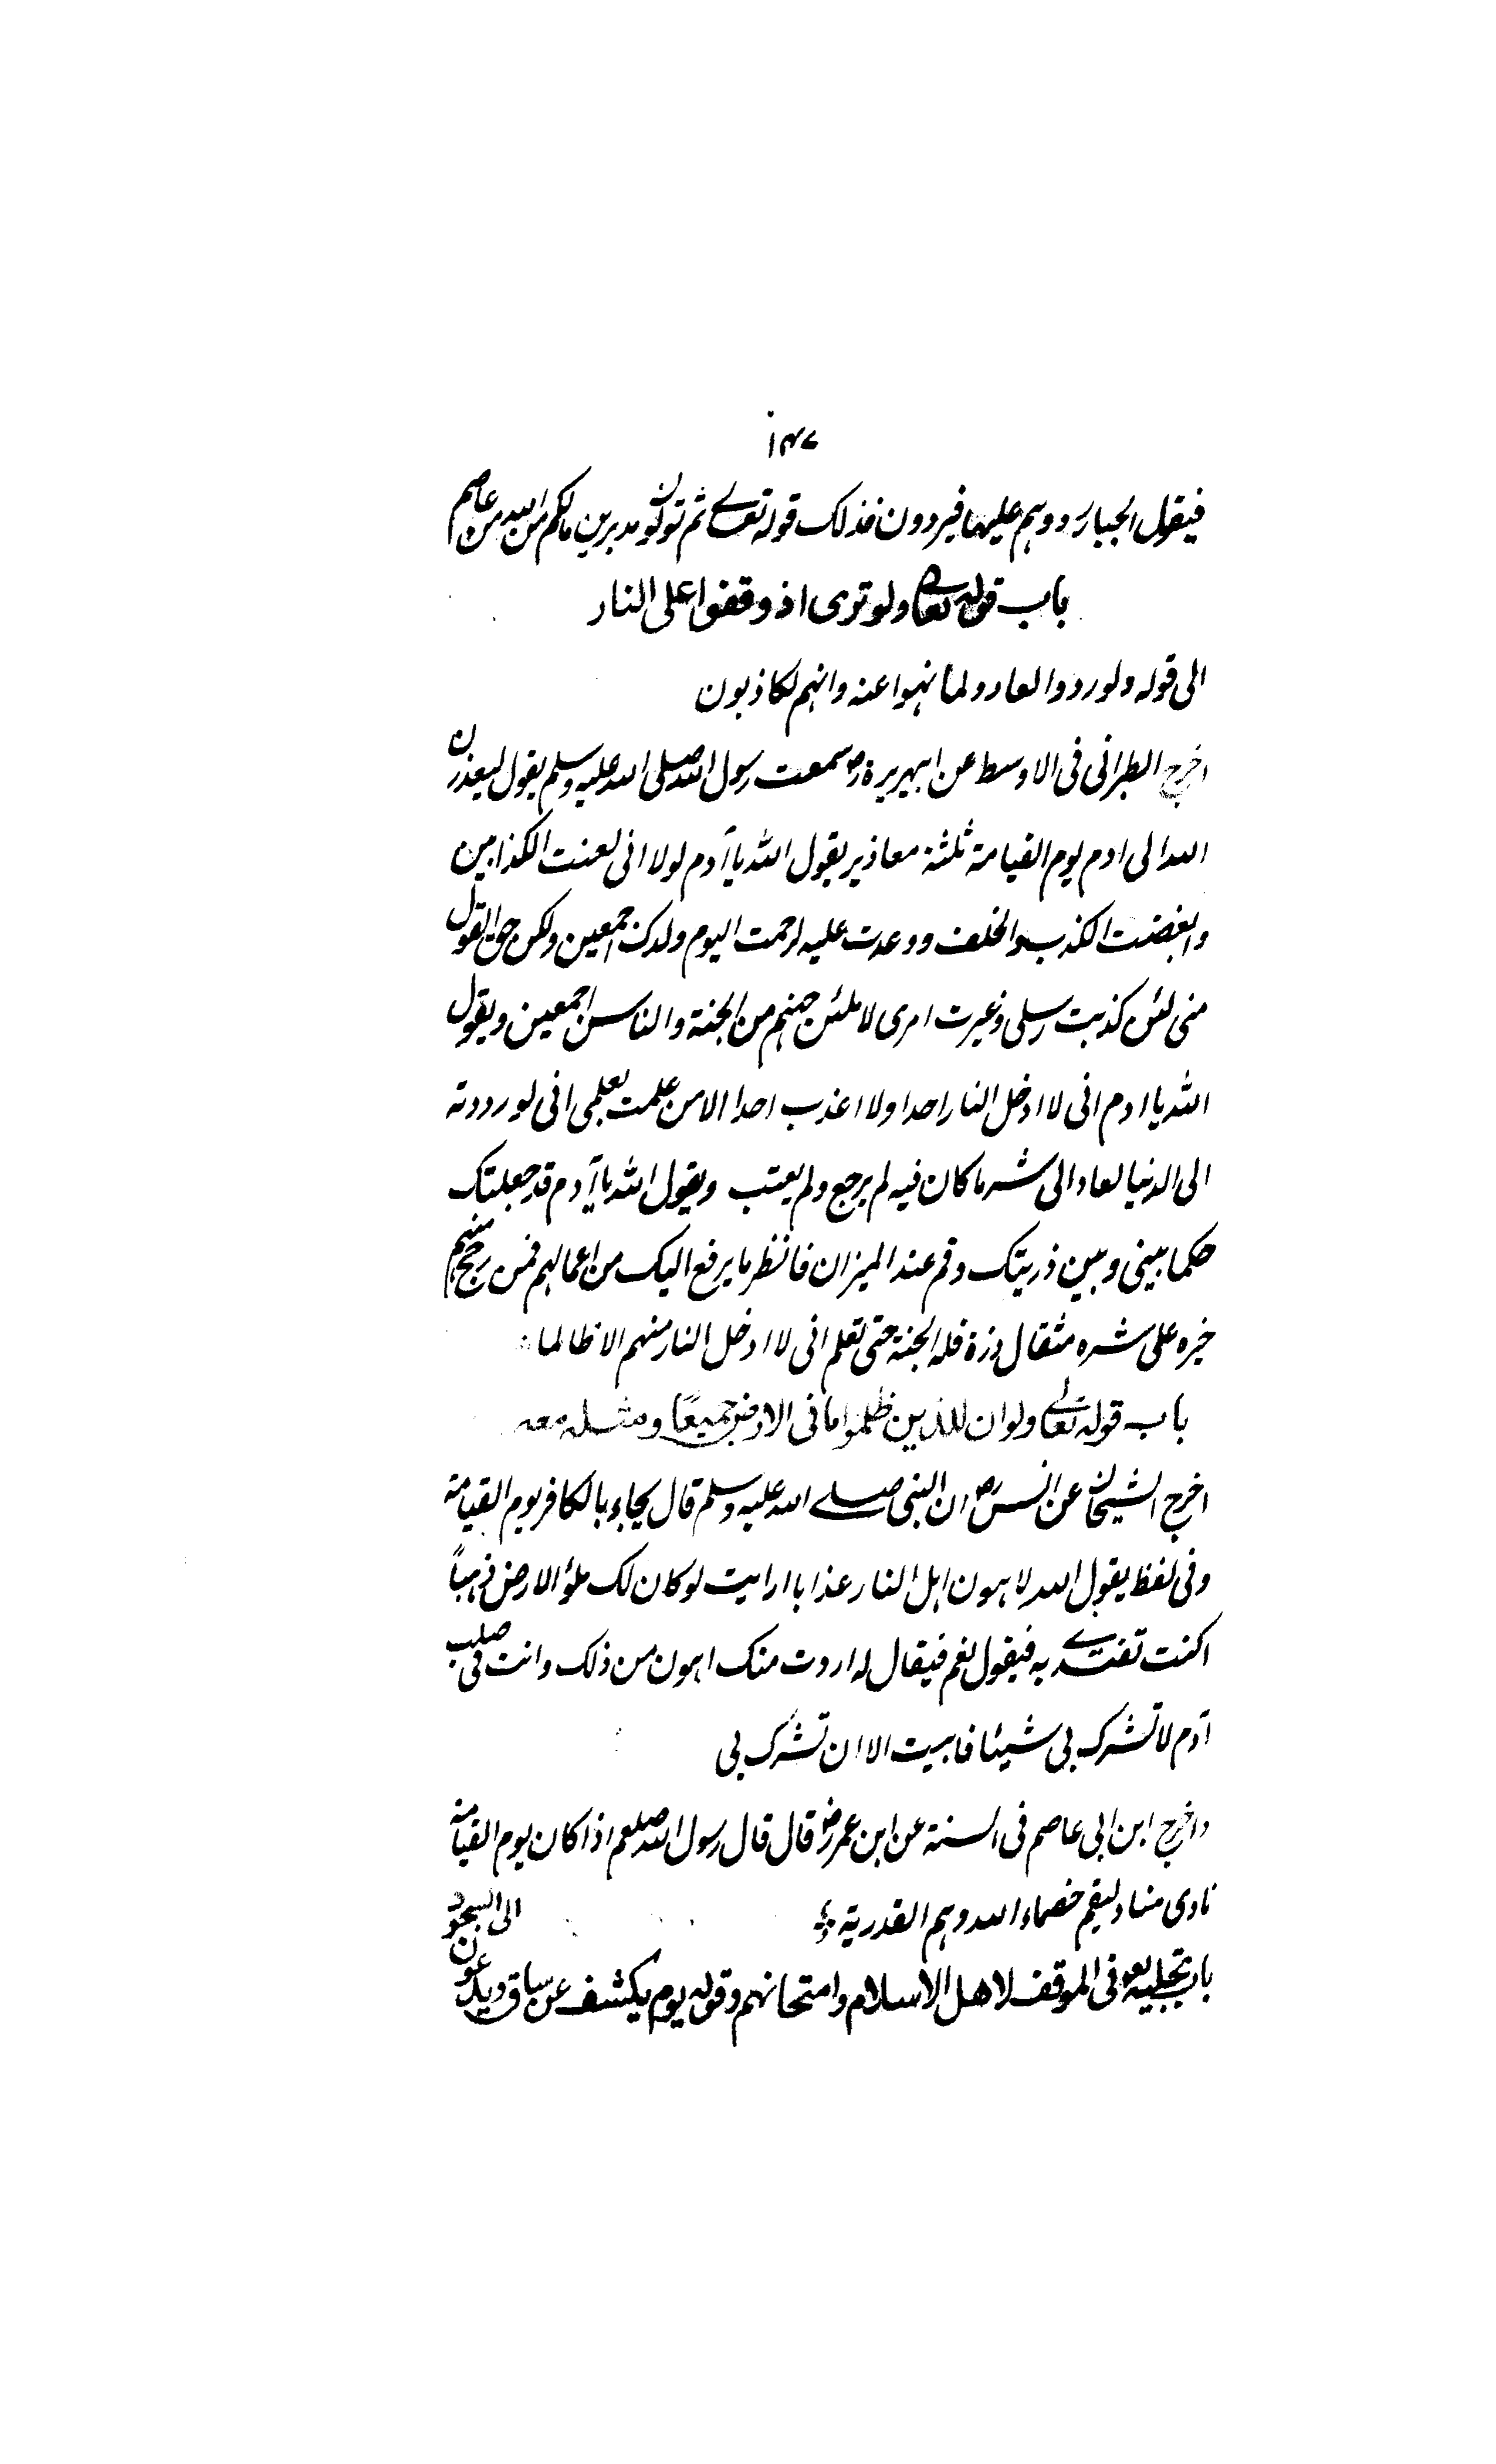 ۱۴۷
فیقول الجبار ردوہم علیہا فیردون فذلک قولہ تعالے ثم تولون مدبرین مالکم من اللہ من عاصم
باب قولہ تعالی ولو تری اذ وقفوا علی النار
الی قولہ ولو ردوا لعادوا لما نہوا عنہ وانہم لکاذبون
اخرج الطبرانی فی الاوسط عن ابیہریرۃ رض سمعت رسول اللہ صلی اللہ علیہ وسلم یقول لیعذرن
اللہ الی ادم یوم القیامۃ ثلثۃ معاذیر یقول اللہ یا آدم لولا انی لعنت الکذابین
وابغضت الکذب والخلف ووعدت علیہ لرحمت الیوم ولدک اجمعین ولکن حق القول
منی لئن کذبت رسلی وغیرت امری لاملئن جہنم من الجنۃ والناس اجمعین ویقول
اللہ یا ادم انی لا ادخل النار احدا ولا اعذب احدا الا من علمت بعلمی انی لو رددتہ
الی الدنیا لعاد الی شر ما کان فیہ لم یرجع ولم یعتب ویقول اللہ یا آدم قد جعلتک
حکما بینی وبین ذریتک وقم عند المیزان فانظر ما یرفع الیک من اعمالہم فمن رجح منہم
خیرہ علی شرہ مثقال ذرۃ فلہ الجنۃ حتی تعلم انی لا ادخل النار منہم الا ظالما
باب قولہ تعالے ولو ان للذین ظلموا ما فی الارض جمیعًا ومثلہ معہ
اخرج الشیخان عن انس رض ان النبی صلے اللہ علیہ وسلم قال یجاء بالکافر یوم القیامۃ
وفی لفظ یقول اللہ لاہون اہل النار عذابا ارایت لو کان لک ملؤ الارض ذہباً
اکنت تفتدے بہ فیقول نعم فیقال لہ اردت منک اہون من ذلک وانت فی صلب
آدم لا تشرک بی شیئا فابیت الا ان تشرک بی
واخرج ابن ابی عاصم فی السنۃ عن ابن عمر رض قال قال رسول اللہ صلعم اذا کان یوم القیامۃ
نادی مناد لیقم خصماء اللہ وہم القدریۃ
باب تجلیہ تعو فی الموقف لاهل الاسلام وامتحانہم وقولہ یوم یکشف عن ساق ویدعون الی السجود